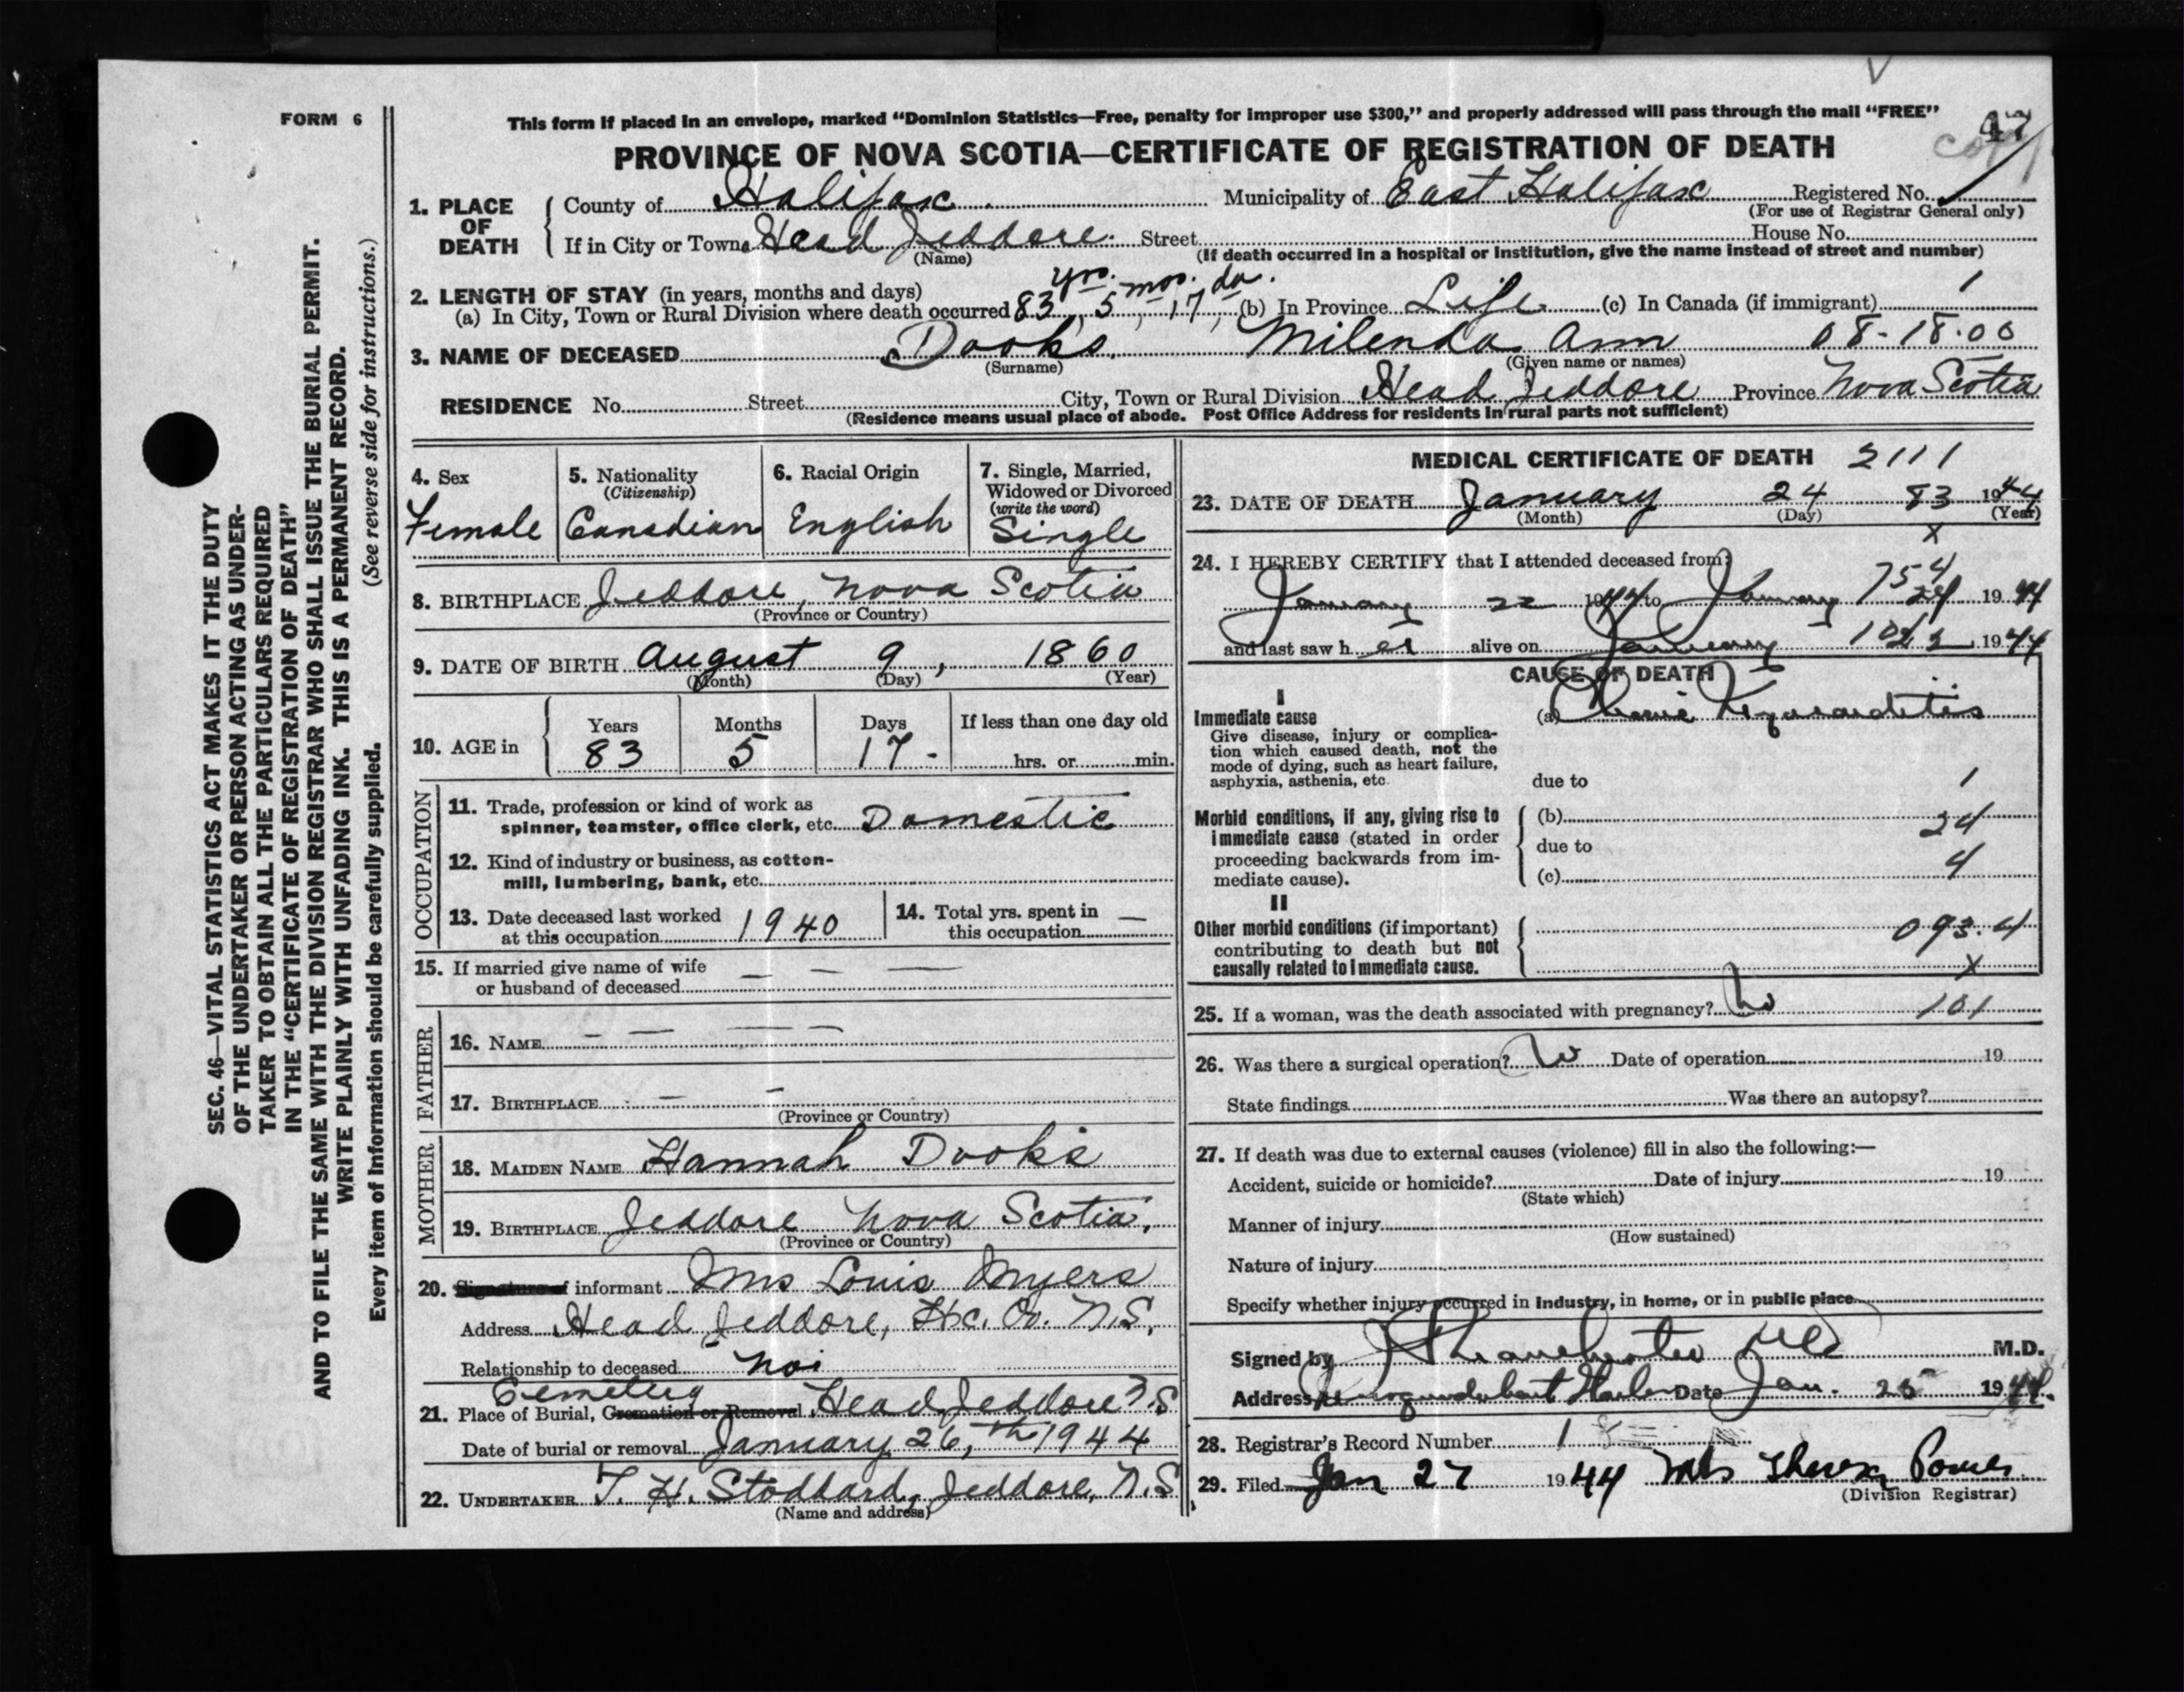 FORM 6
This form if placed in an envelope, marked “Dominion Statistics—Free, penalty for improper use $300,” and properly addressed will pass through the mail “FREE”
47
copy
PROVINCE OF NOVA SCOTIA—CERTIFICATE OF REGISTRATION OF DEATH
1. PLACE OF DEATH
County of Halifax Municipality of East Halifax Registered No.
(For use of Registrar General only)
If in City or Town Head Jeddore Street House No.
(Name) (If death occurred in a hospital or institution, give the name instead of street and number)
2. LENGTH OF STAY (in years, months and days) yrs. mos. da.
(a) In City, Town or Rural Division where death occurred 83, 5, 17, (b) In Province Life (c) In Canada (if immigrant) 1
3. NAME OF DECEASED Dooks, Milenda Ann 08-18-00
(Surname) (Given name or names)
RESIDENCE No. Street City, Town or Rural Division Head Jeddore Province Nova Scotia
(Residence means usual place of abode. Post Office Address for residents in rural parts not sufficient)
SEC. 46—VITAL STATISTICS ACT MAKES IT THE DUTY
OF THE UNDERTAKER OR PERSON ACTING AS UNDER-
TAKER TO OBTAIN ALL THE PARTICULARS REQUIRED
IN THE “CERTIFICATE OF REGISTRATION OF DEATH”
AND TO FILE THE SAME WITH THE DIVISION REGISTRAR WHO SHALL ISSUE THE BURIAL PERMIT.
WRITE PLAINLY WITH UNFADING INK. THIS IS A PERMANENT RECORD.
Every item of Information should be carefully supplied. (See reverse side for instructions.)
4. Sex
Female
5. Nationality
(Citizenship)
Canadian
6. Racial Origin
English
7. Single, Married,
Widowed or Divorced
(write the word)
Single
8. BIRTHPLACE Jeddore, Nova Scotia
(Province or Country)
9. DATE OF BIRTH August 9, 1860
(Month) (Day) (Year)
10. AGE in
Years Months Days If less than one day old
83 5 17 hrs. or min.
OCCUPATION
11. Trade, profession or kind of work as
spinner, teamster, office clerk, etc. Domestic
12. Kind of industry or business, as cotton-
mill, lumbering, bank, etc.
13. Date deceased last worked
at this occupation 1940
14. Total yrs. spent in
this occupation —
15. If married give name of wife
or husband of deceased — — —
FATHER
16. NAME — — — —
17. BIRTHPLACE — —
(Province or Country)
MOTHER
18. MAIDEN NAME Hannah Dooks
19. BIRTHPLACE Jeddore Nova Scotia,
(Province or Country)
20. Signature of informant Mrs Louis Myers
Address Head Jeddore, Hx. Co. N.S.
Relationship to deceased
Cemetery
21. Place of Burial, Cremation or Removal Head Jeddore N.S
Date of burial or removal January 26,th 1944
22. UNDERTAKER T. H. Stoddard, Jeddore, N.S
(Name and address)
MEDICAL CERTIFICATE OF DEATH 2111
23. DATE OF DEATH January 24 83 1944
(Month) (Day) (Year)
x
24. I HEREBY CERTIFY that I attended deceased from:
754
January 22 1944 to January 24 1944
and last saw h er alive on January 1944
CAUSE OF DEATH
I
Immediate cause
Give disease, injury or complica-
tion which caused death, not the
mode of dying, such as heart failure,
asphyxia, asthenia, etc.
(a) Chronic Myocarditis
due to 1
Morbid conditions, if any, giving rise to
immediate cause (stated in order
proceeding backwards from im-
mediate cause).
(b) 24
due to
(c) 4
II
Other morbid conditions (if important)
contributing to death but not
causally related to immediate cause.
093.4
x
25. If a woman, was the death associated with pregnancy? No 101
26. Was there a surgical operation? No Date of operation 19
State findings Was there an autopsy?
27. If death was due to external causes (violence) fill in also the following:—
Accident, suicide or homicide? Date of injury 19
(State which)
Manner of injury
(How sustained)
Nature of injury
Specify whether injury occurred in Industry, in home, or in public place
Signed by M.D.
Address Harbor Date Jan. 25 1944.
28. Registrar's Record Number 1
29. Filed Jan 27 1944 Mrs Power
(Division Registrar)